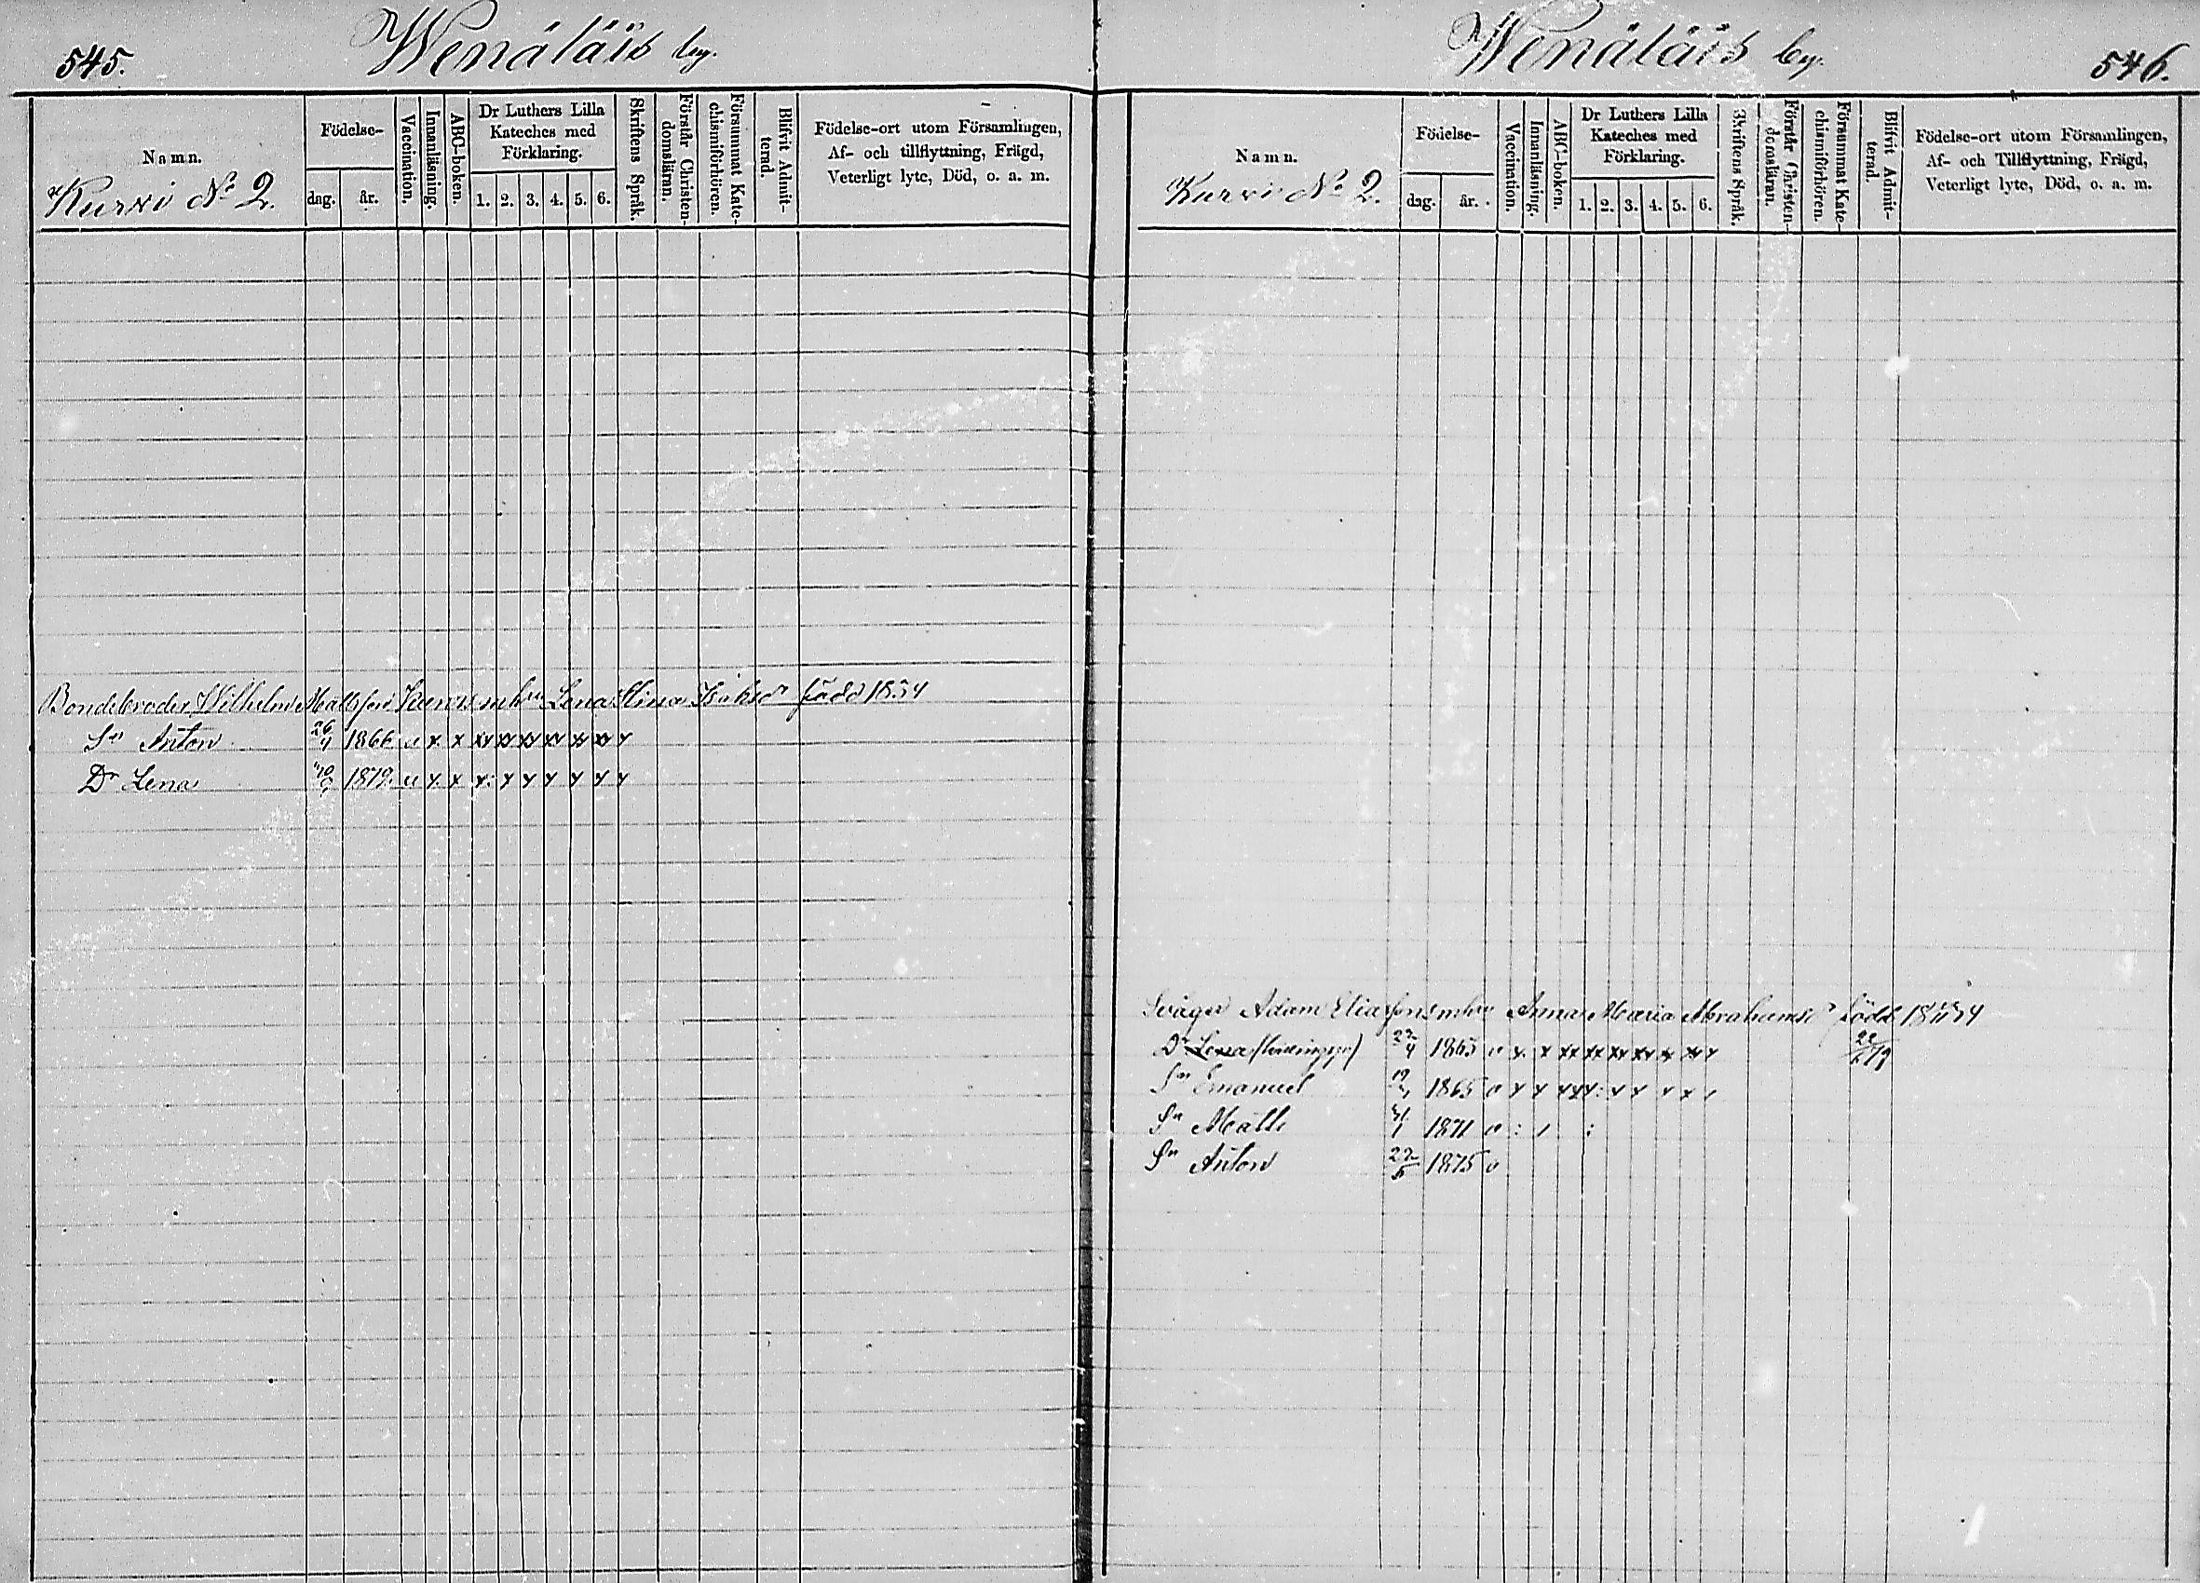 545. Wenäläis by.
Namn.
Kurvi No 2.
Födelse-
dag. år.
Vaccination.
Innanläsning.
ABC-boken.
Dr Luthers Lilla
Kateches med
Förklaring.
1. 2. 3. 4. 5. 6.
Skriftens Språk.
Förstår Christen-
domsläran.
Försummat Kate-
chismiförhören.
Blifvit Admit-
terad.
Födelse-ort utom Församlingen,
Af- och tillflyttning, Frägd,
Veterligt lyte, Död, o. a. m.
Bondebroder Wilhelm Mattsson m hu Lena Stina född 1834
Sn Anton 26/4 1866 x x xx xx xx xx xx xx x
Dr Lena 1879 x x x x x x x x x
Wenäläis by. 546.
Namn.
Kurvi No 2.
Födelse-
dag. år.
Vaccination.
Innanläsning.
ABC-boken.
Dr Luthers Lilla
Kateches med
Förklaring.
1. 2. 3. 4. 5. 6.
Skriftens Språk.
Förstår Christen-
domsläran.
Försummat Kate-
chismiförhören.
Blifvit Admit-
terad.
Födelse-ort utom Församlingen,
Af- och Tillflyttning, Frägd,
Veterligt lyte, Död, o. a. m.
Svåger Adam Eliasson m hu Anna Maria Abrahamsdr född
Dr Lena 22/4 1863 v x x xx xx xx xx xx xx x
Sn Emanuel 1865 v x x
Sn Matts 1871 v
Sn Anton 22/5 1875 v